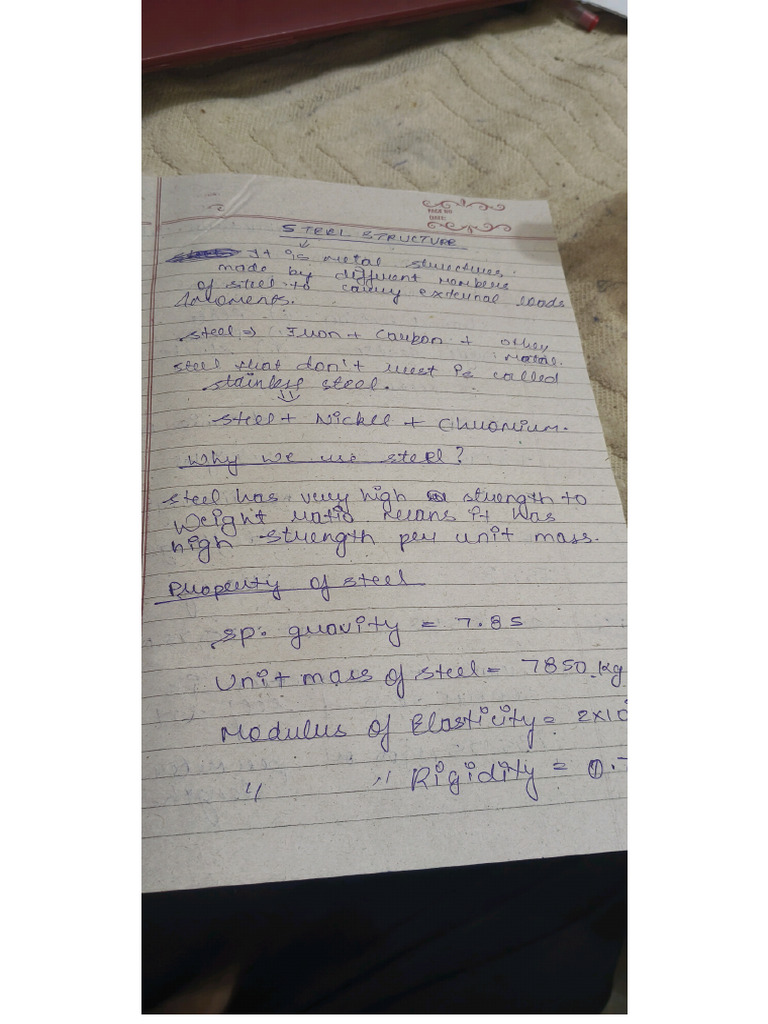 PAGE NO:
DATE:
STEEL STRUCTURE
It is metal structures.
made by different members
of steel to carry external loads
& moments.
steel ⇒ Iron + Carbon + other
metal.
steel that don't rust is called
stainless steel.
⇓
steel + Nickel + Chromium.
Why we use steel?
steel has very high strength to
weight ratio means it has
high strength per unit mass.
Property of steel
sp. gravity = 7.85
Unit mass of steel = 7850 kg
Modulus of Elasticity = 2×10
" " Rigidity = 0.